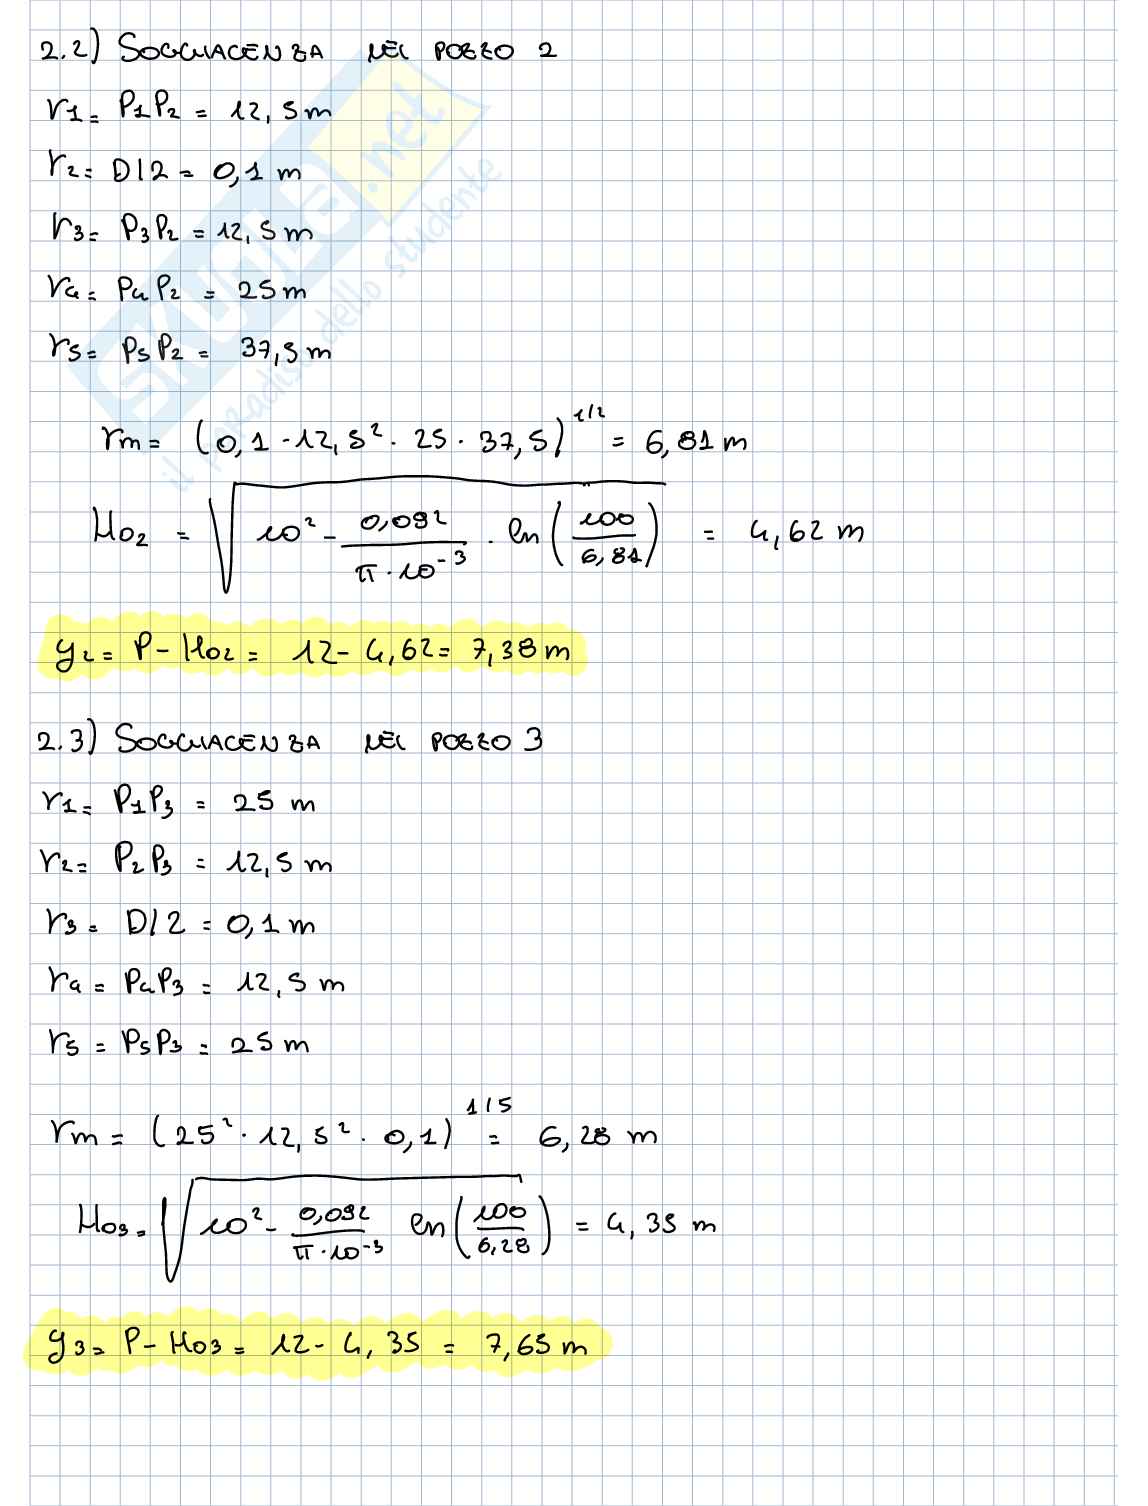 2.2) SOGGIACENZA NEL POZZO 2
r1 = P1P2 = 12,5 m
r2 = D/2 = 0,1 m
r3 = P3P2 = 12,5 m
r4 = P4P2 = 25 m
r5 = P5P2 = 37,5 m
rm = (0,1 · 12,5² · 25 · 37,5)^1/2 = 6,81 m
H02 = √(10² - 0,092/(π · 10⁻³) · ln(100/6,81)) = 4,62 m
y2 = P - H02 = 12 - 4,62 = 7,38 m
2.3) SOGGIACENZA NEL POZZO 3
r1 = P1P3 = 25 m
r2 = P2P3 = 12,5 m
r3 = D/2 = 0,1 m
r4 = P4P3 = 12,5 m
r5 = P5P3 = 25 m
rm = (25² · 12,5² · 0,1)^1/5 = 6,28 m
H03 = √(10² - 0,092/(π · 10⁻³) ln(100/6,28)) = 4,35 m
y3 = P - H03 = 12 - 4,35 = 7,65 m
SKUOLA.net
il paradiso dello studente